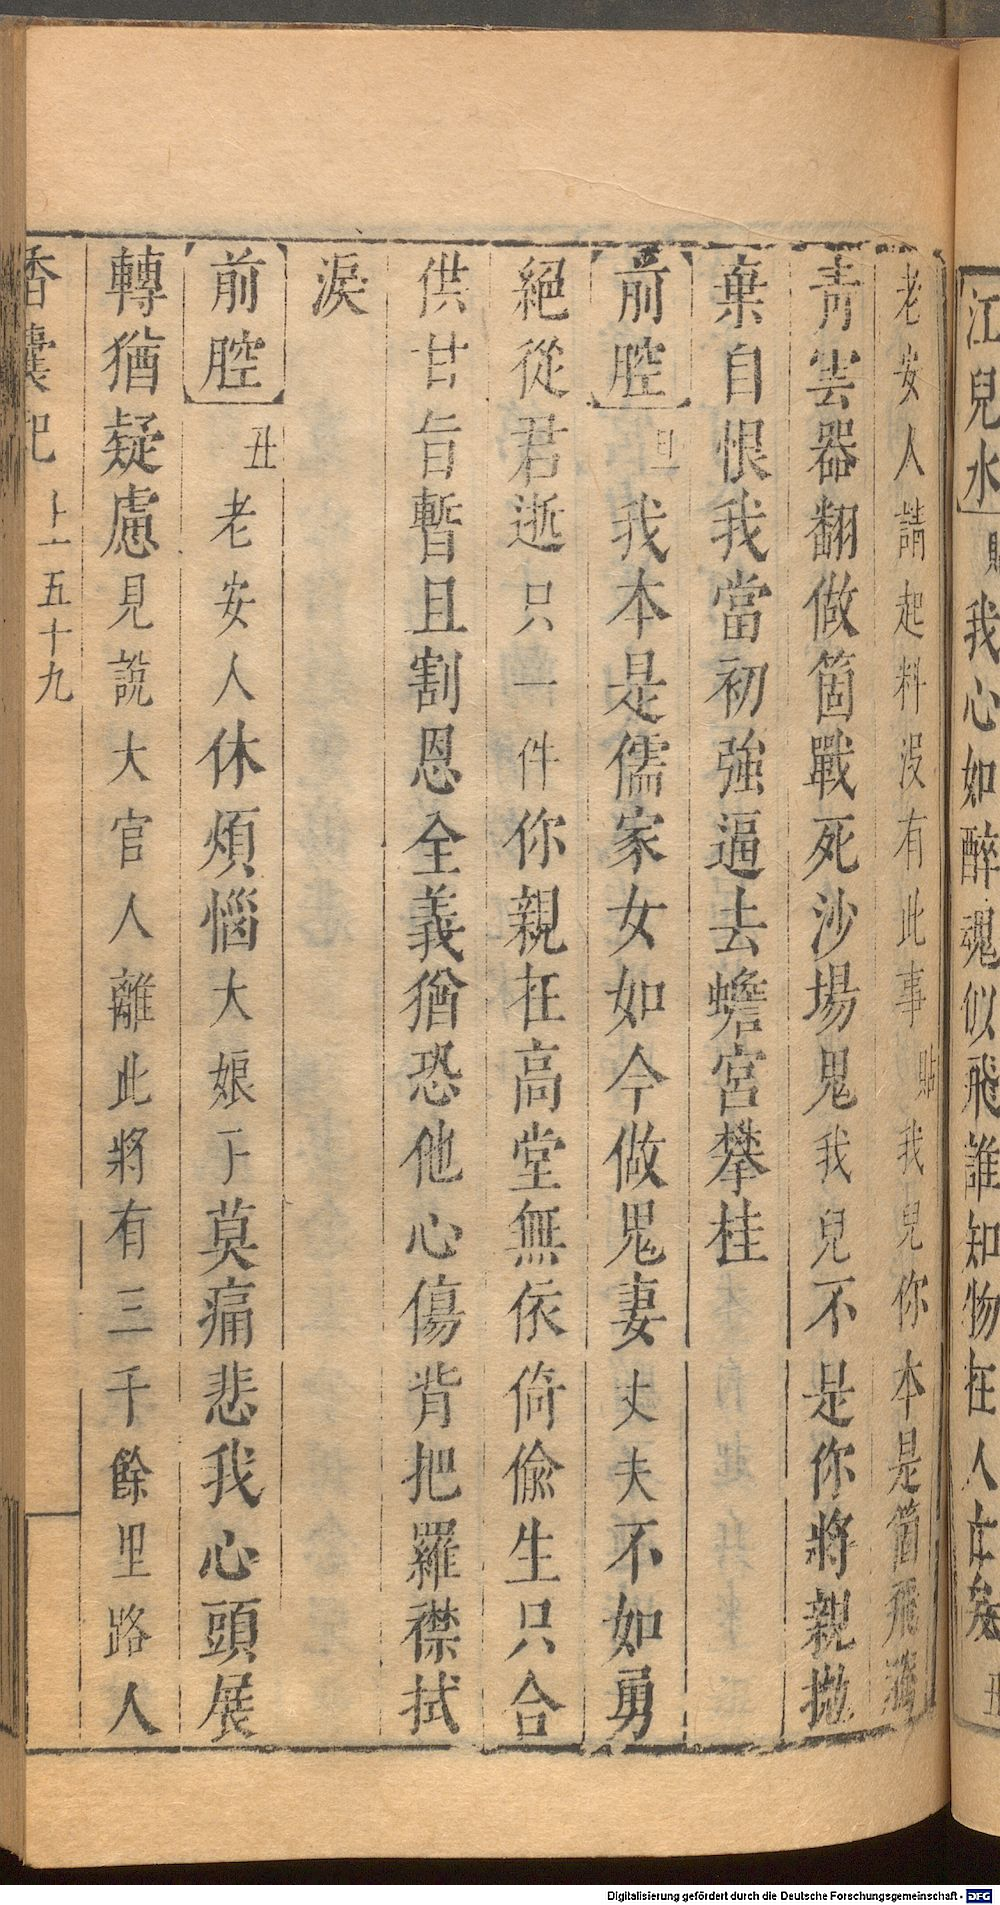 江兒水 貼 我心如醉魂似飛誰知物在人亡矣 丑
老安人請起料没有此事 貼 我兒你本是箇飛
青雲器翻做箇戰死沙場鬼我兒不是你將親抛
棄自恨我當初強逼去蟾宮攀桂
前腔 旦 我本是儒家女如今做鬼妻丈夫不如勇
絕從君逝只一件你親在高堂無依倚偷生只合
供甘旨暫且割恩全義猶恐他心傷背把羅襟拭
淚
前腔 丑 老安人休煩惱大娘子莫痛悲我心頭展
轉猶疑慮見說大官人離此將有三千餘里路人
香囊記 上 五十九
Digitalisierung gefördert durch die Deutsche Forschungsgemeinschaft - DFG